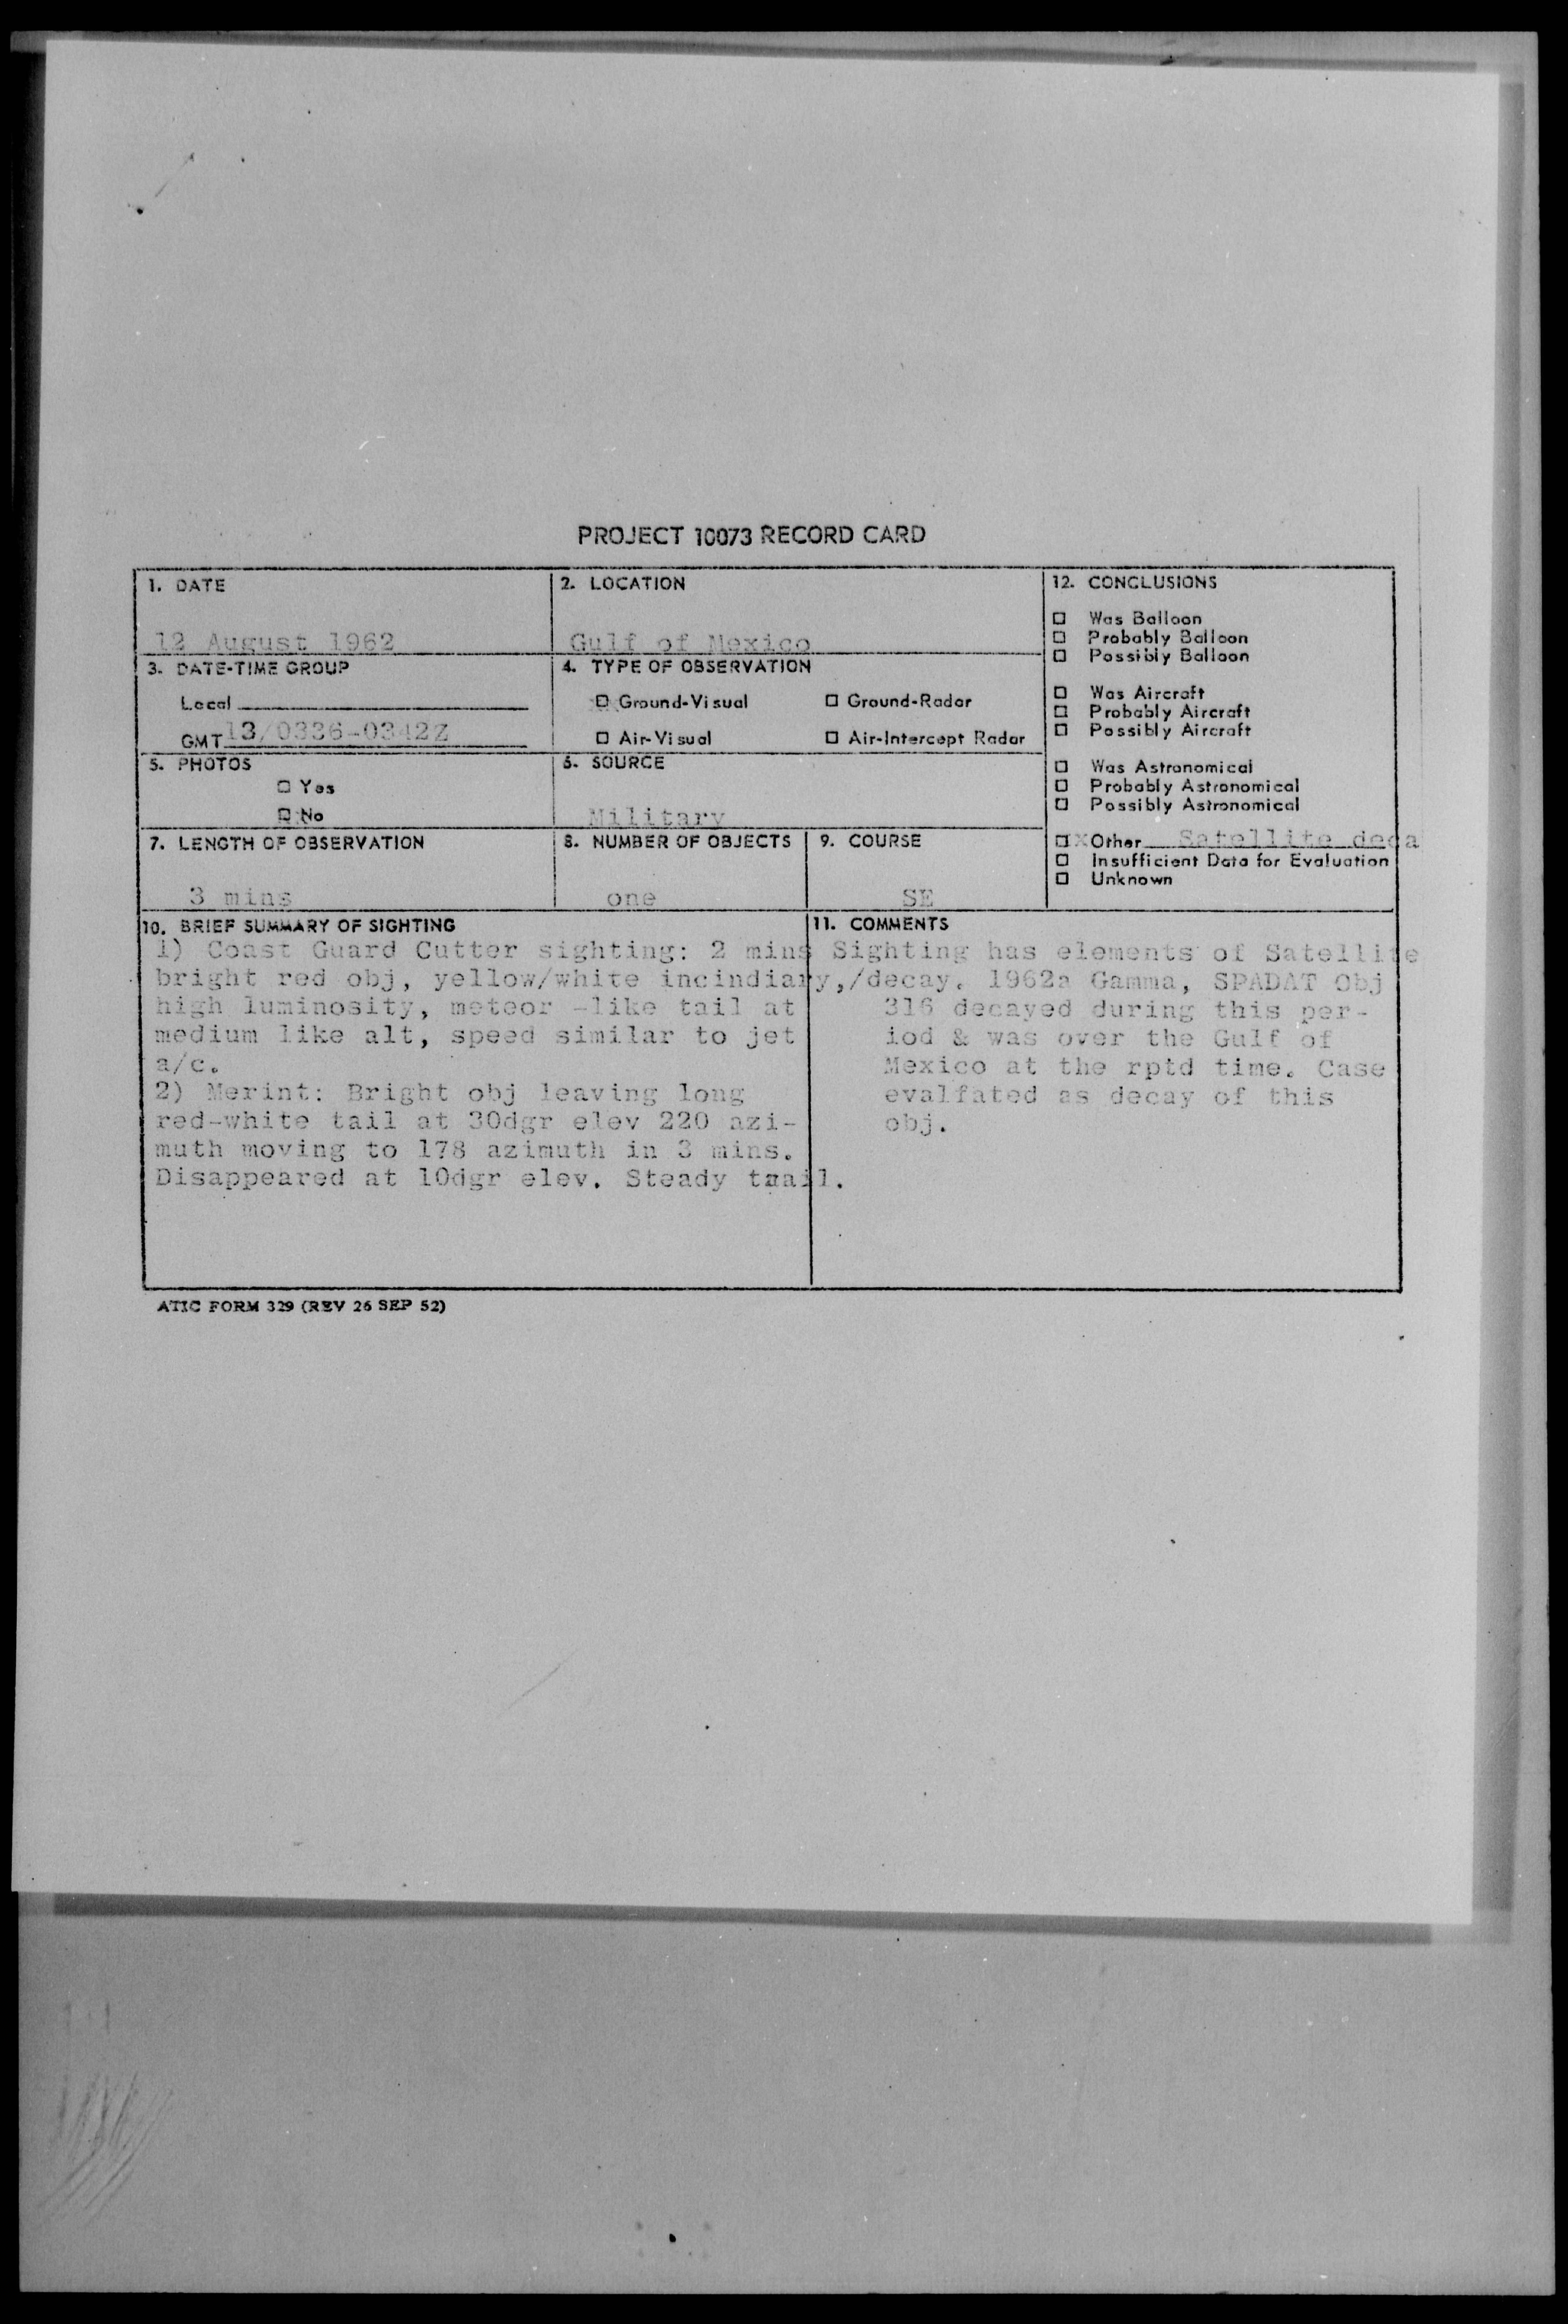 PROJECT 10073 RECORD CARD
1. DATE
12 August 1962
2. LOCATION
Gulf of Mexico
3. DATE-TIME GROUP
Local
GMT 13/0336-0342Z
4. TYPE OF OBSERVATION
☒ Ground-Visual ☐ Ground-Radar
☐ Air-Visual ☐ Air-Intercept Radar
5. PHOTOS
☐ Yes
☒ No
6. SOURCE
Military
7. LENGTH OF OBSERVATION
3 mins
8. NUMBER OF OBJECTS
one
9. COURSE
SE
12. CONCLUSIONS
☐ Was Balloon
☐ Probably Balloon
☐ Possibly Balloon
☐ Was Aircraft
☐ Probably Aircraft
☐ Possibly Aircraft
☐ Was Astronomical
☐ Probably Astronomical
☐ Possibly Astronomical
☐x Other Satellite deca
☐ Insufficient Data for Evaluation
☐ Unknown
10. BRIEF SUMMARY OF SIGHTING
1) Coast Guard Cutter sighting: 2 mins
bright red obj, yellow/white incindiary,
high luminosity, meteor -like tail at
medium like alt, speed similar to jet
a/c.
2) Merint: Bright obj leaving long
red-white tail at 30dgr elev 220 azi-
muth moving to 178 azimuth in 3 mins.
Disappeared at 10dgr elev. Steady traail.
11. COMMENTS
Sighting has elements of Satellite
/decay. 1962a Gamma, SPADAT Obj
316 decayed during this per-
iod & was over the Gulf of
Mexico at the rptd time. Case
evalfated as decay of this
obj.
ATIC FORM 329 (REV 26 SEP 52)